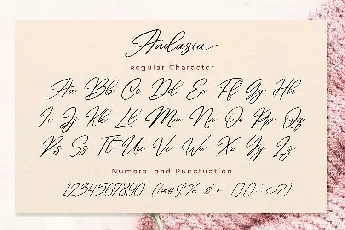 Andasia
Regular Character
Aa Bb Cc Dd Ee Ff Gg Hh
Ii Jj Kk Ll Mm Nn Oo Pp Qq
Rs Ss Tt Uu Vv Ww Xx Yy Zz
Numeral and Punctuation
1234567890